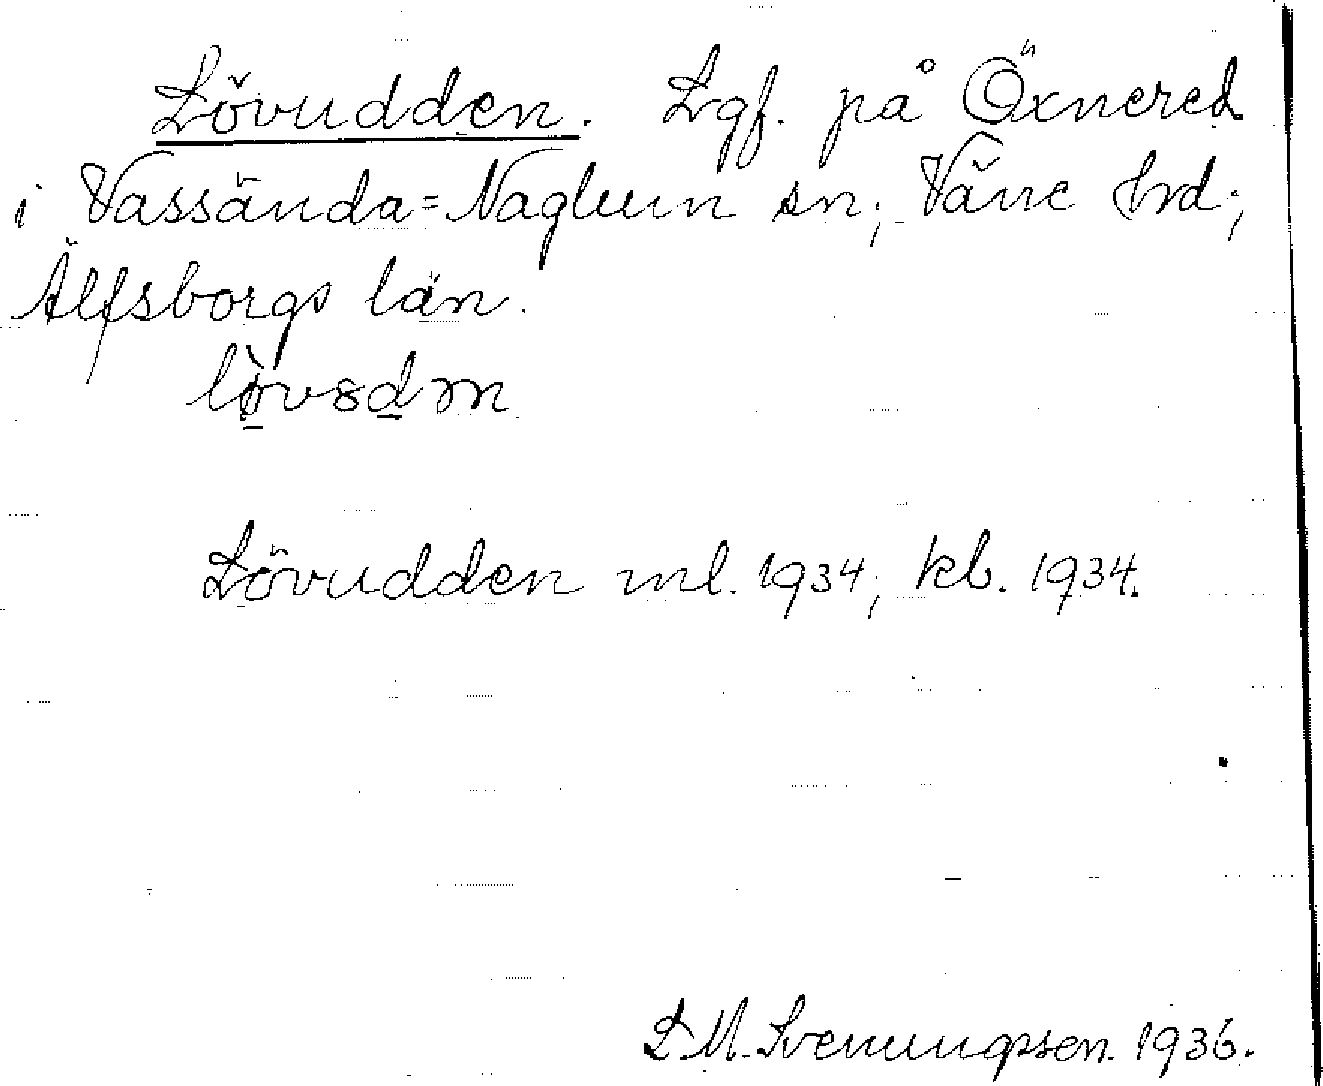 Lövudden. Lgf. på Öxnered
i Vassända=Naglum sn; Väne hrd;
Älfsborgs län.
Lövudden ml. 1934; kb. 1934.
L M. Svenungsson. 1936.